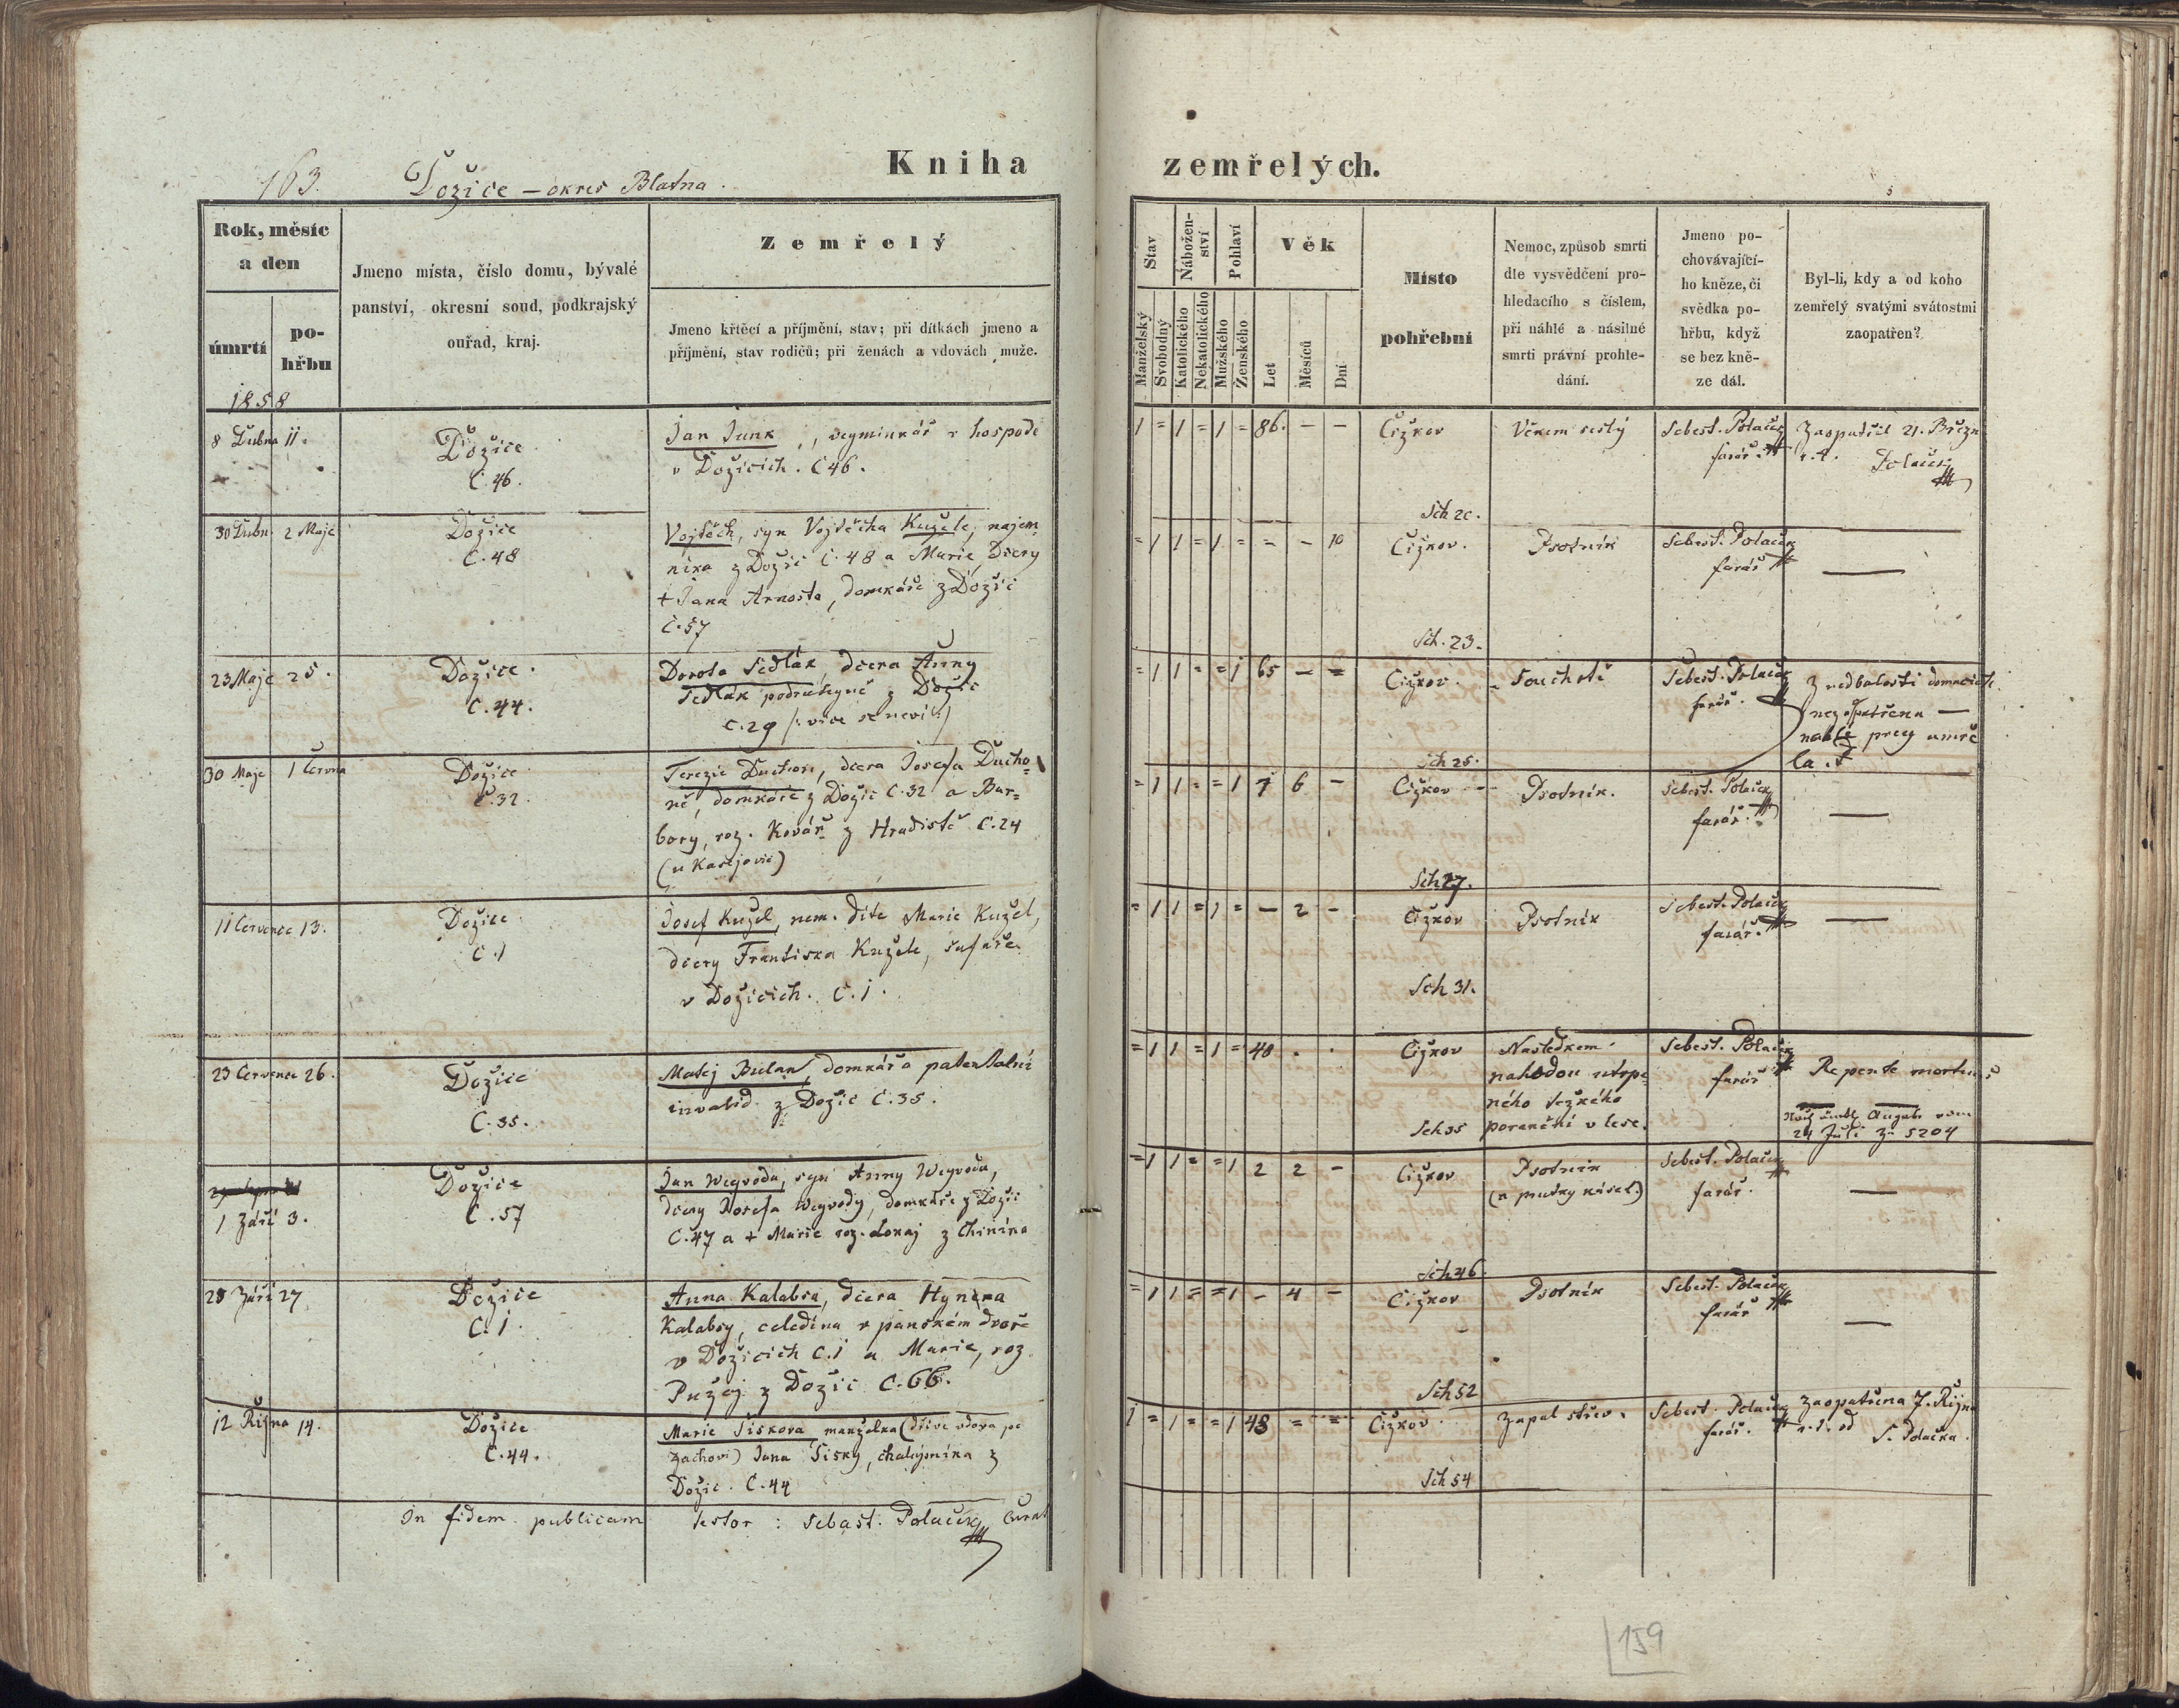 163. Dožice – okres Blatna.
Kniha zemřelých.
Rok, měsíc a den
úmrtí
po-
hřbu
1858
Jmeno místa, číslo domu, bývalé
panství, okresní soud, podkrajský
ouřad, kraj.
Zemřelý
Jmeno křtěcí a příjmění, stav; při dítkách jmeno a
příjmění, stav rodičů; při ženách a vdovách muže.
Stav
Manželský
Svobodný
Nábožen-
ství
Katolického
Nekatolického
Pohlaví
Mužského
Ženského
Věk
Let
Měsíců
Dní
Místo
pohřební
Nemoc, způsob smrti
dle vysvědčení pro-
hledacího s číslem,
při náhlé a násilné
smrti právní prohle-
dání.
Jmeno po-
chovávající-
ho kněze, či
svědka po-
hřbu, když
se bez kně-
ze dál.
Byl-li, kdy a od koho
zemřelý svatými svátostmi
zaopatřen?
8 Dubna 11.
Dožice
C. 46.
Jan Junk, veyminkář v hospodě
v Dožicích. C 46.
1 = 1 = 1 = 86. – –
Čížkov
Sch 20.
Věkem sešlý
Sebest. Polaček
farář.
Zaopatřil 21. Březn
r. t. Polaček
30 Dubn 2 Maje
Dožice
C. 48
Vojtěch, syn Vojtěcha Kužele, najem=
níka z Dožic C. 48 a Marie Dcery
+ Jana Arnošta, domkáře z Dožic
C. 57
= 1 1 = 1 = = – 10
Čížkov.
Sch. 23.
Psotník
Sebest. Polaček
farář
—
23 Maje 25.
Dožice.
C. 44.
Dorota Sedlák, dcera Anny
Sedlák podruhyně z Dožic
C. 29 /: více se neví :/
= 1 1 = = 1 65 – =
Čížkov.
Sch 25.
Souchotě
Sebest. Polaček
farář.
Z nedbalosti domacich
nezaopatřena —
nahle prey umře
la.
30 Maje 1 Června
Dožice
C. 32.
Terezie Duchon, dcera Josefa Ducho=
ně, domkáře z Dožic C. 32 a Bar=
bory, roz. Kovář z Hradiště C. 24
(u Kasejovic)
= 1 1 = = 1 7 6 –
Čížkov
Sch 27.
Psotník.
Sebest. Polaček
farář.
—
11 Července 13.
Dožice
C. 1
Josef Kužel, nem. dítě Marie Kužel,
dcery Františka Kužele, šafáře
v Dožicích. C. 1.
= 1 1 = 1 = – 2 –
Čížkov
Sch 31.
Psotník
Sebest. Polaček
farář.
—
23 Července 26.
Dožice
C. 35.
Matěj Bulan, domkář a patentalní
invalid z Dožic C. 35.
= 1 1 = 1 = 40 . .
Čížkov
Sch 35
Nasledkem
nahodou utrpe=
ného težkého
poranění v lese.
Sebest. Polaček
farář
Repente mortuus
24 Juli Z. 5204
1 Září 3.
Dožice
C. 57
Jan Weyvoda, syn Anny Weyvoda,
dcery Josefa Weyvody, domkáře z Dožic
C. 47 a + Marie roz. Lokaj z Chinína
= 1 1 = = 1 2 2 –
Čížkov
Sch 46
Psotník
Sebest. Polaček
farář.
—
25 Září 27
Dožice
C. 1.
Anna Kalabra, dcera Hynka
Kalabry, čeledína v panském dvoře
v Dožicích C. 1 a Marie, roz.
Pužej z Dožic C. 66.
= 1 1 = = 1 – 4 –
Čížkov
Sch 52
Psotník
Sebest. Polaček
farář
—
12 Října 14.
Dožice
C. 44.
Marie Šiskova manželka (dříve vdova po
Zachovi) Jana Šisky, chalupníka z
Dožic. C. 44
1 = 1 = = 1 48 = =
Čížkov.
Sch 54
Zapal střev.
Sebest. Polaček
farář.
Zaopatřena 7. Října
r. t. od
S. Polačka.
In fidem publicam testor : Sebast. Polaček Curat
159